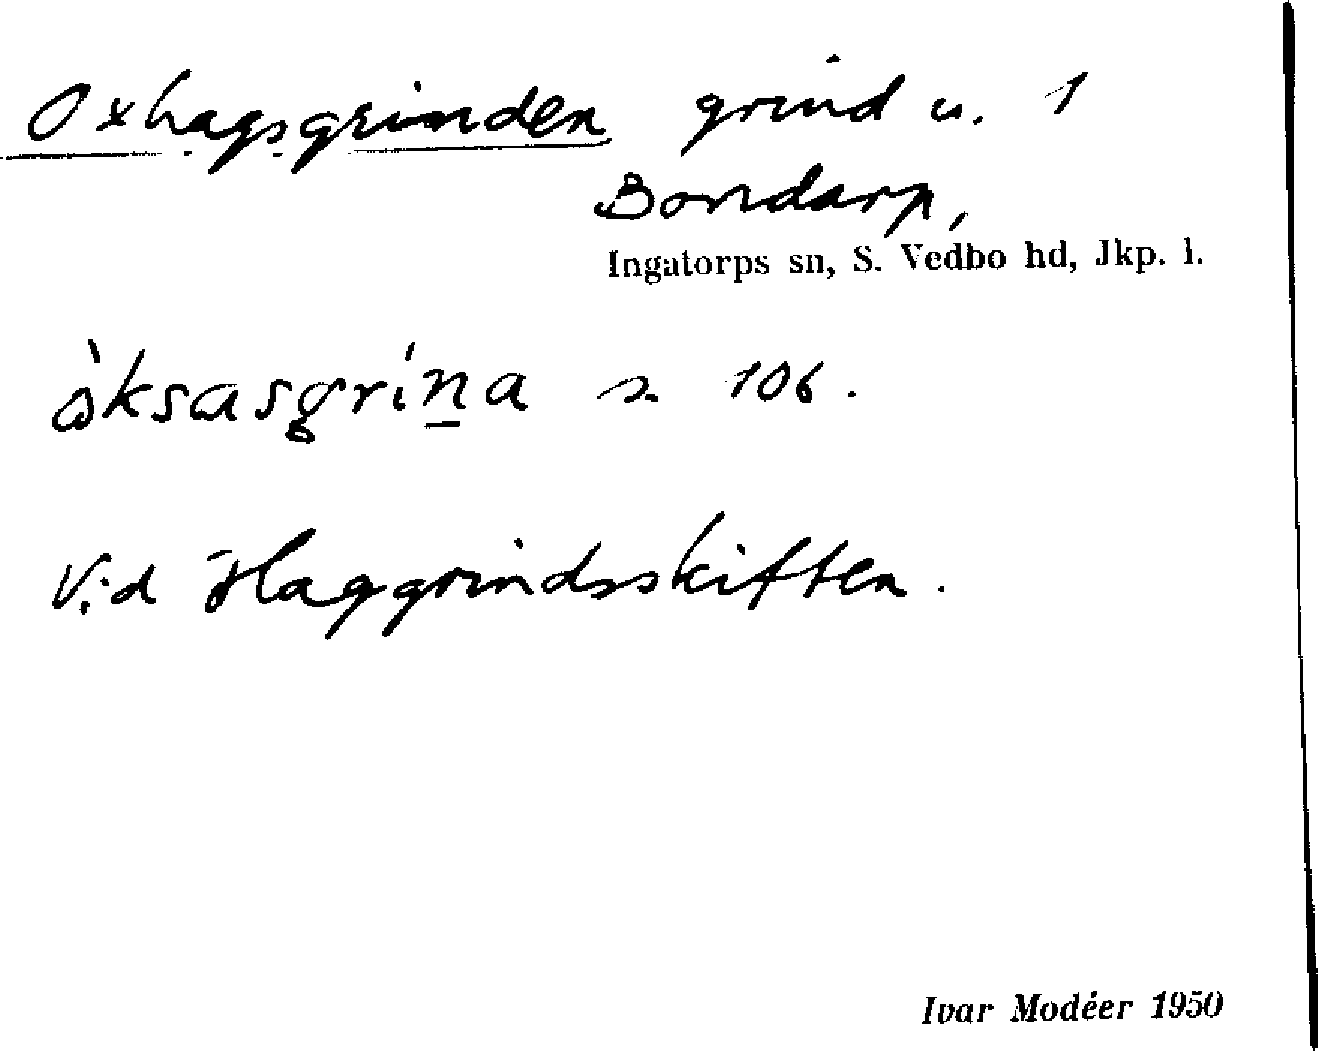 Oxhagsgrinden grind u. 1
Bondarp,
Ingatorps sn, S. Vedbo hd, Jkp. l.
òksasgrína s. 106.
Vid Haggrindsskiften.
Ivar Modéer 1950